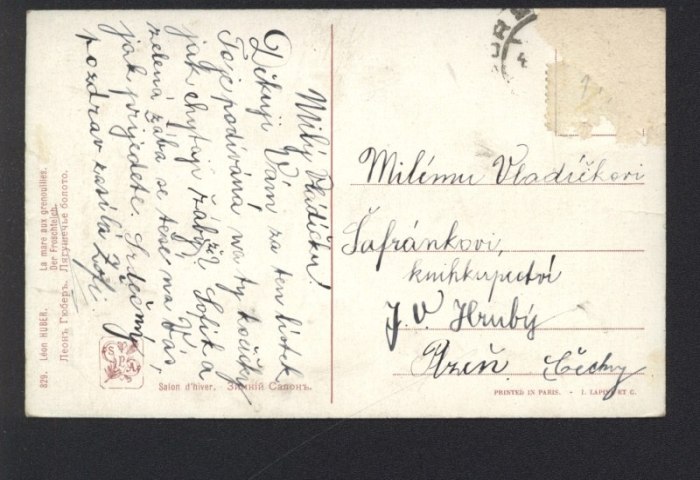 Milý Vladíčku!
Děkuji Vám za ten lístek
To je podívána na ty kočičky
jak chytají žáby! Sofik a
zelená žába se těší na Vás,
jak přijedete. Srdečný
pozdrav zasílá Zofi.
Milému Vladíčkovi
Šafránkovi,
knihkupectví
J. V. Hrubý
Plzeň Čechy
829. Léon HUBER. La mare aux grenouilles.
Der Froschteich.
Леонъ Гюберъ. Лягушечье болото.
S P A
Salon d'hiver. - Зимній Салонъ.
PRINTED IN PARIS. - I. LAPINA ET C.